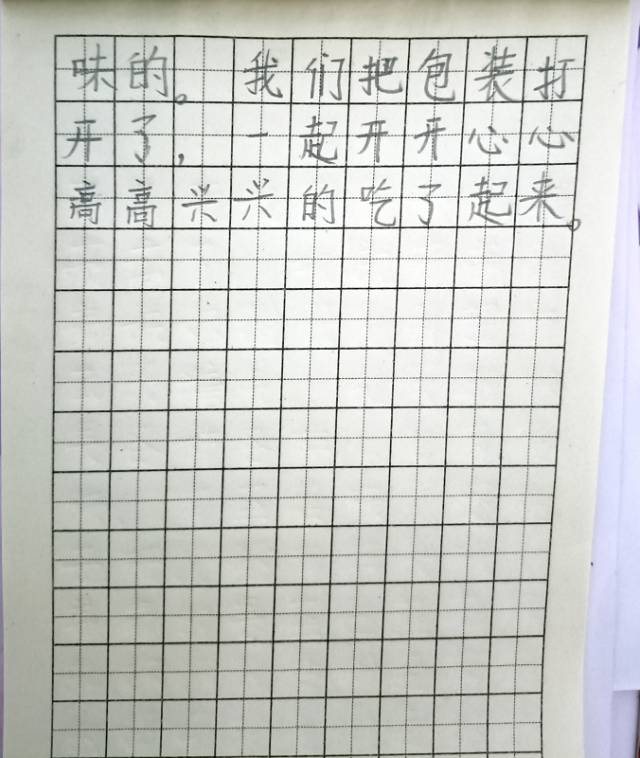 味的。我们把包装打
开了，一起开开心心
高高兴兴的吃了起来。